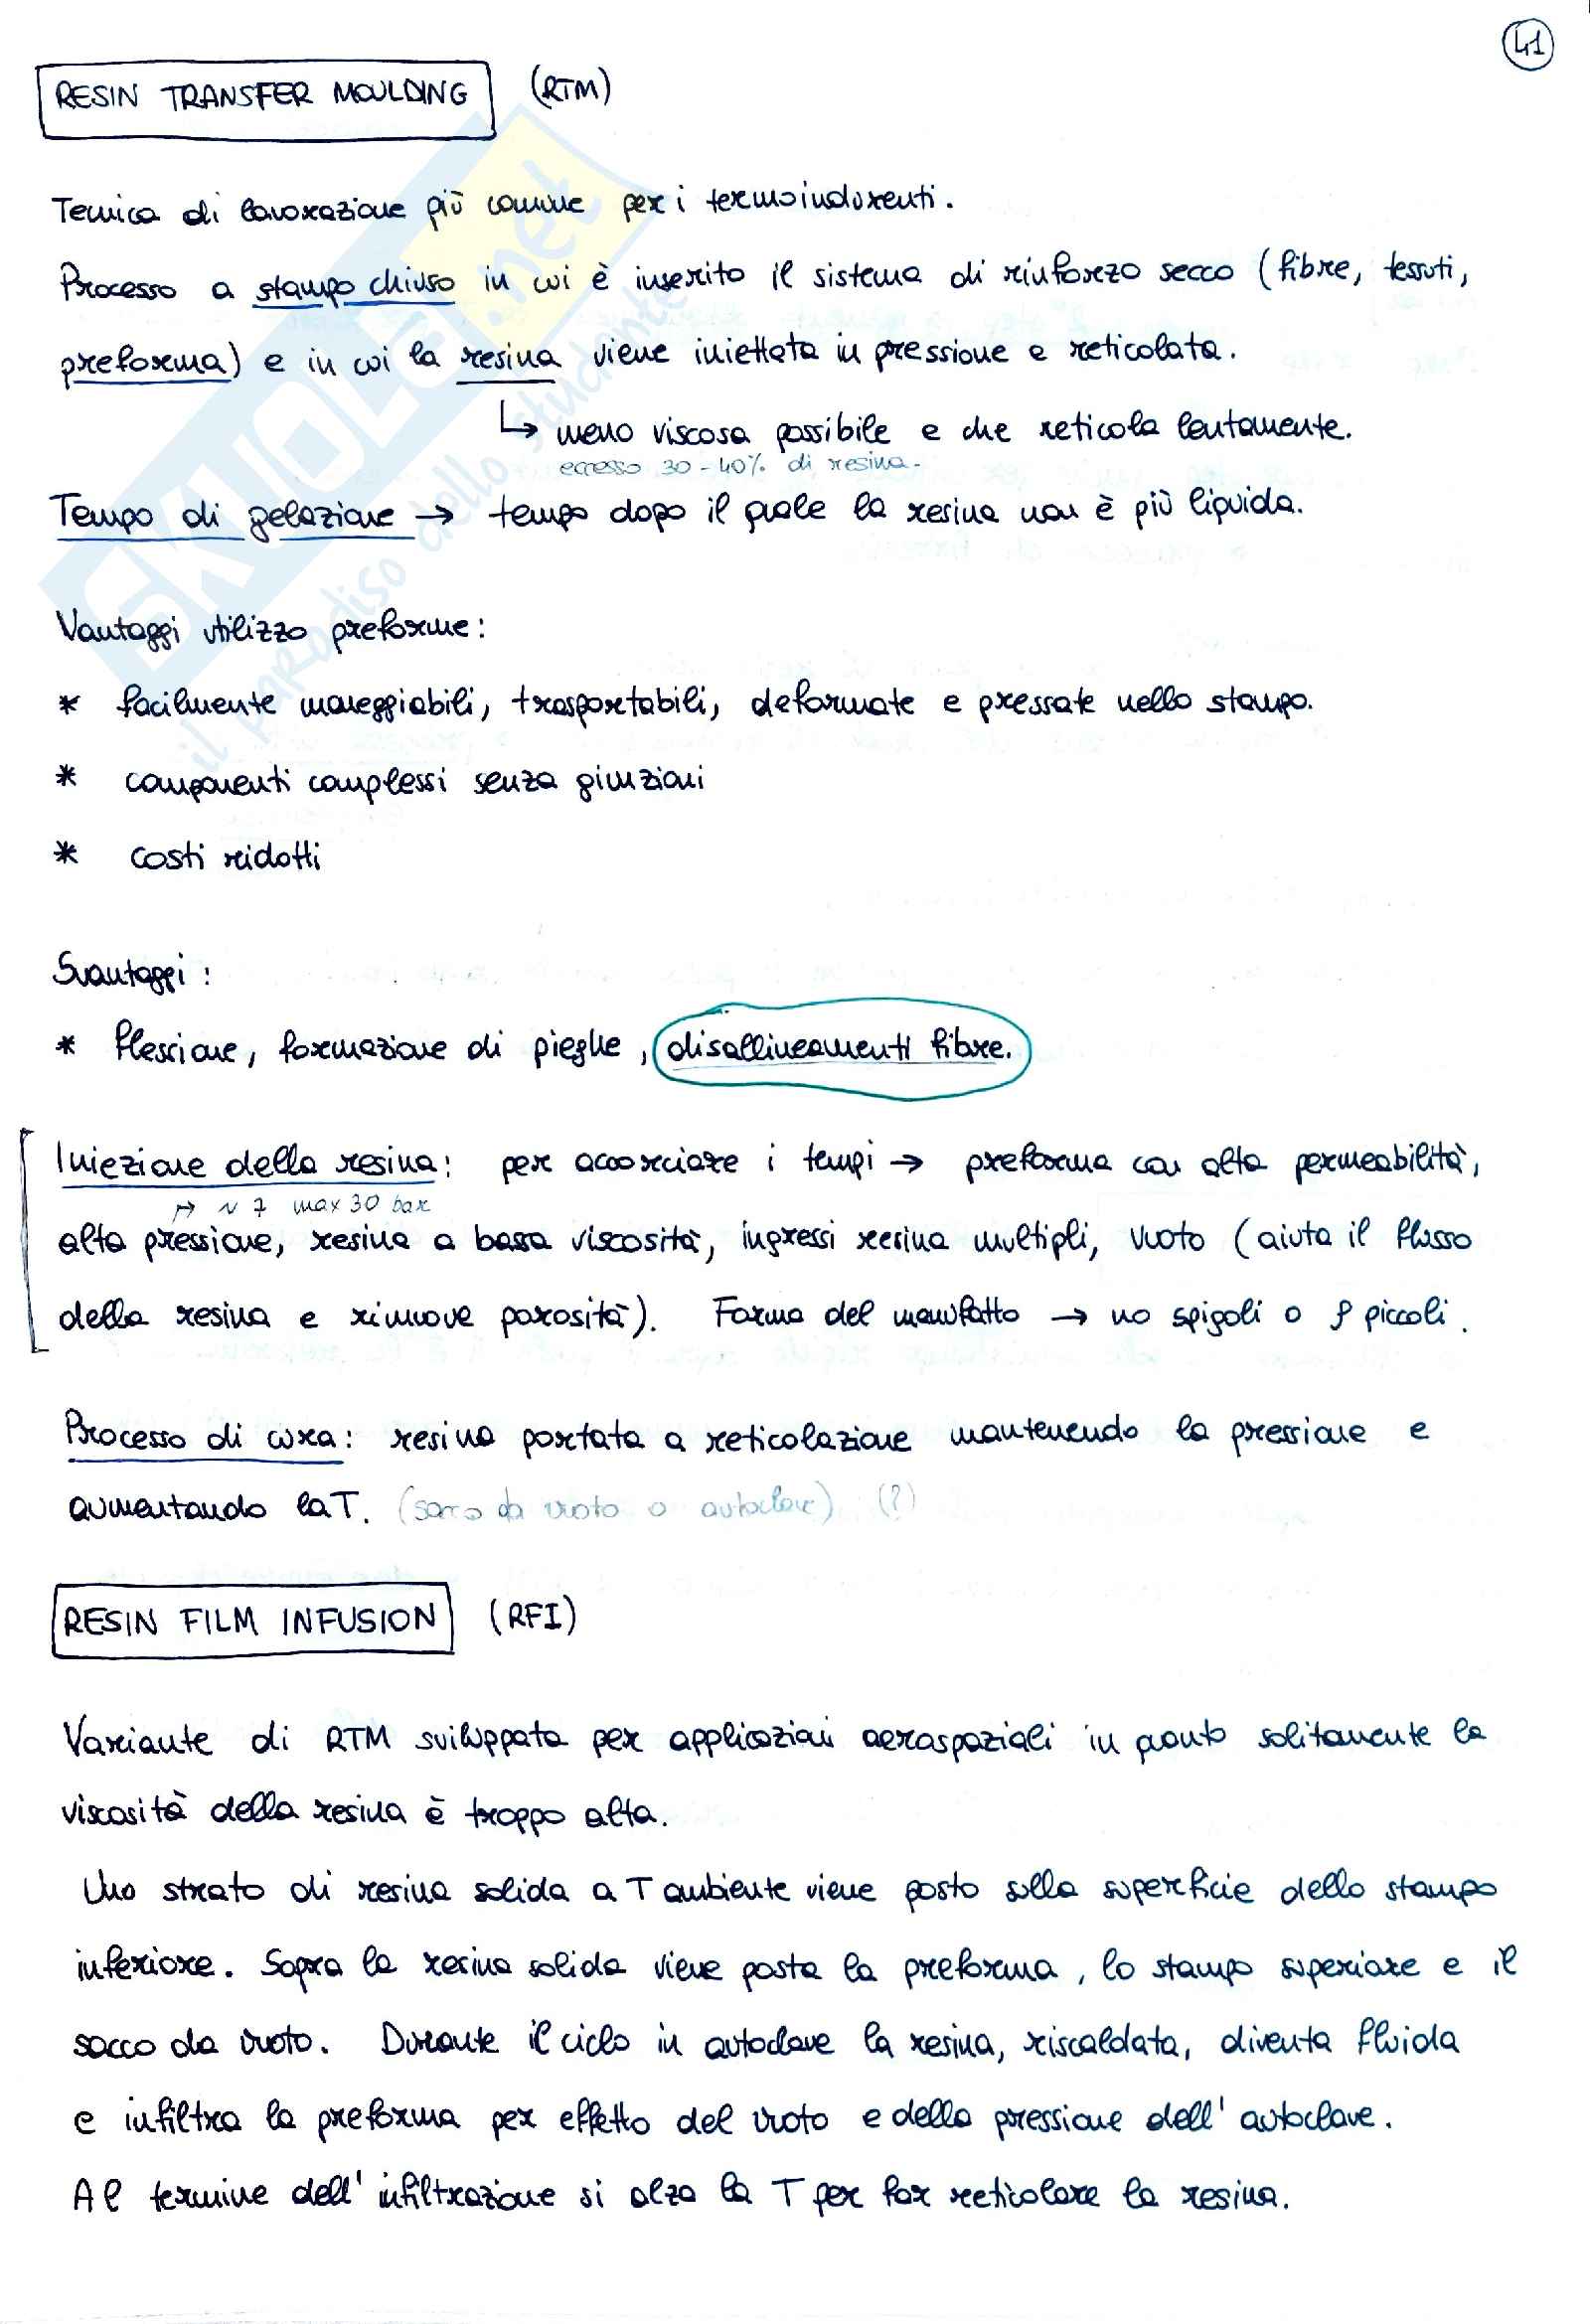 41
RESIN TRANSFER MOULDING (RTM)
Tecnica di lavorazione più comune per i termoindurenti.
Processo a stampo chiuso in cui è inserito il sistema di rinforzo secco (fibre, tessuti,
preforma) e in cui la resina viene iniettata in pressione e reticolata.
↳ meno viscosa possibile e che reticola lentamente.
eccesso 30-40% di resina.
Tempo di gelazione → tempo dopo il quale la resina non è più liquida.
Vantaggi utilizzo preforme:
* facilmente maneggiabili, trasportabili, deformate e pressate nello stampo.
* componenti complessi senza giunzioni
* costi ridotti
Svantaggi:
* flessione, formazione di pieghe, disallineamenti fibre.
Iniezione della resina: per accorciare i tempi → preforma con alta permeabilità,
↦ ~ 7 max 30 bar
alta pressione, resina a bassa viscosità, ingressi resina multipli, vuoto (aiuta il flusso
della resina e rimuove porosità). Forma del manufatto → no spigoli o ρ piccoli.
Processo di cura: resina portata a reticolazione mantenendo la pressione e
aumentando la T. (sacco da vuoto o autoclave) (?)
RESIN FILM INFUSION (RFI)
Variante di RTM sviluppata per applicazioni aerospaziali in quanto solitamente la
viscosità della resina è troppo alta.
Uno strato di resina solida a T ambiente viene posto sulla superficie dello stampo
inferiore. Sopra la resina solida viene posta la preforma, lo stampo superiore e il
sacco da vuoto. Durante il ciclo in autoclave la resina, riscaldata, diventa fluida
e infiltra la preforma per effetto del vuoto e della pressione dell'autoclave.
Al termine dell'infiltrazione si alza la T per far reticolare la resina.
SKUOLA.net
il paradiso dello studente